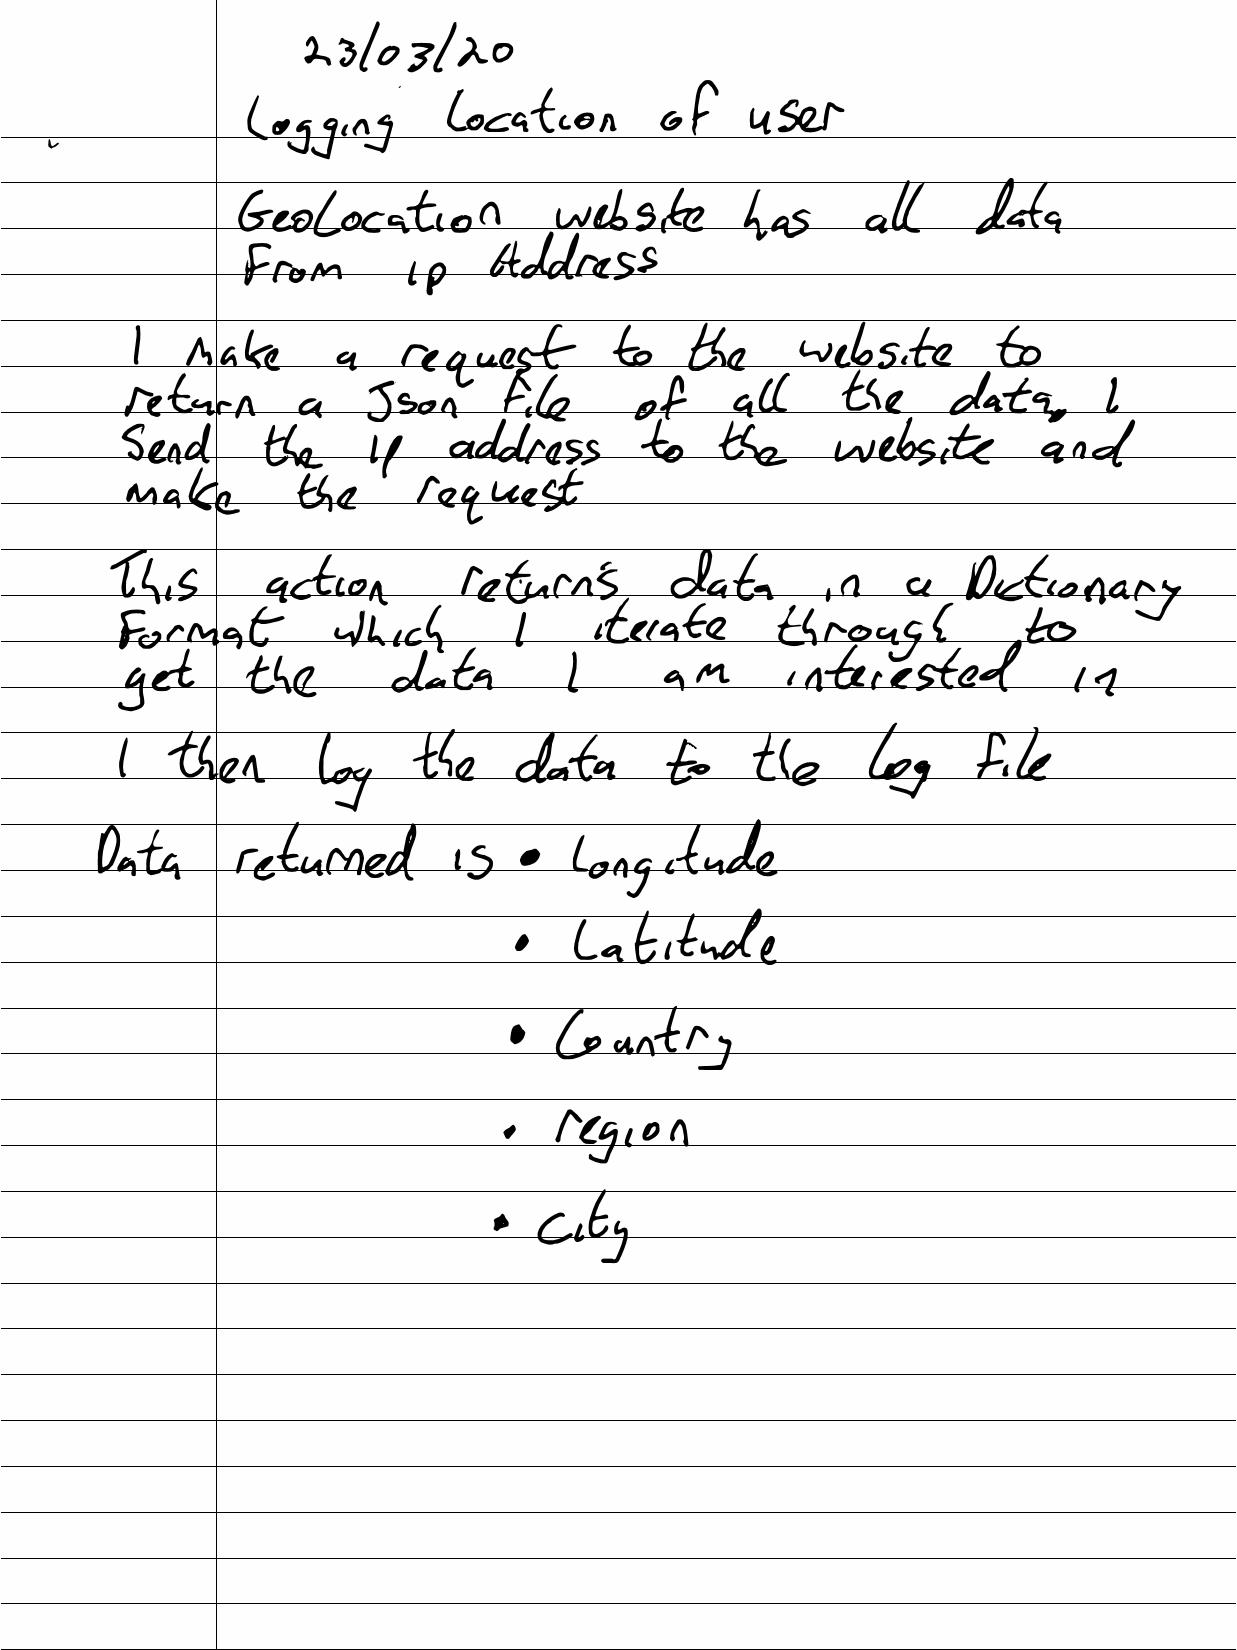 23/03/20
Logging Location of user
GeoLocation website has all data
From ip Address
I make a request to the website to
return a Json File of all the data, I
Send the IP address to the website and
make the request
This action returns data in a Dictionary
Format which I iterate through to
get the data I am interested in
I then log the data to the log file
Data returned is • Longitude
• Latitude
• Country
• region
• City